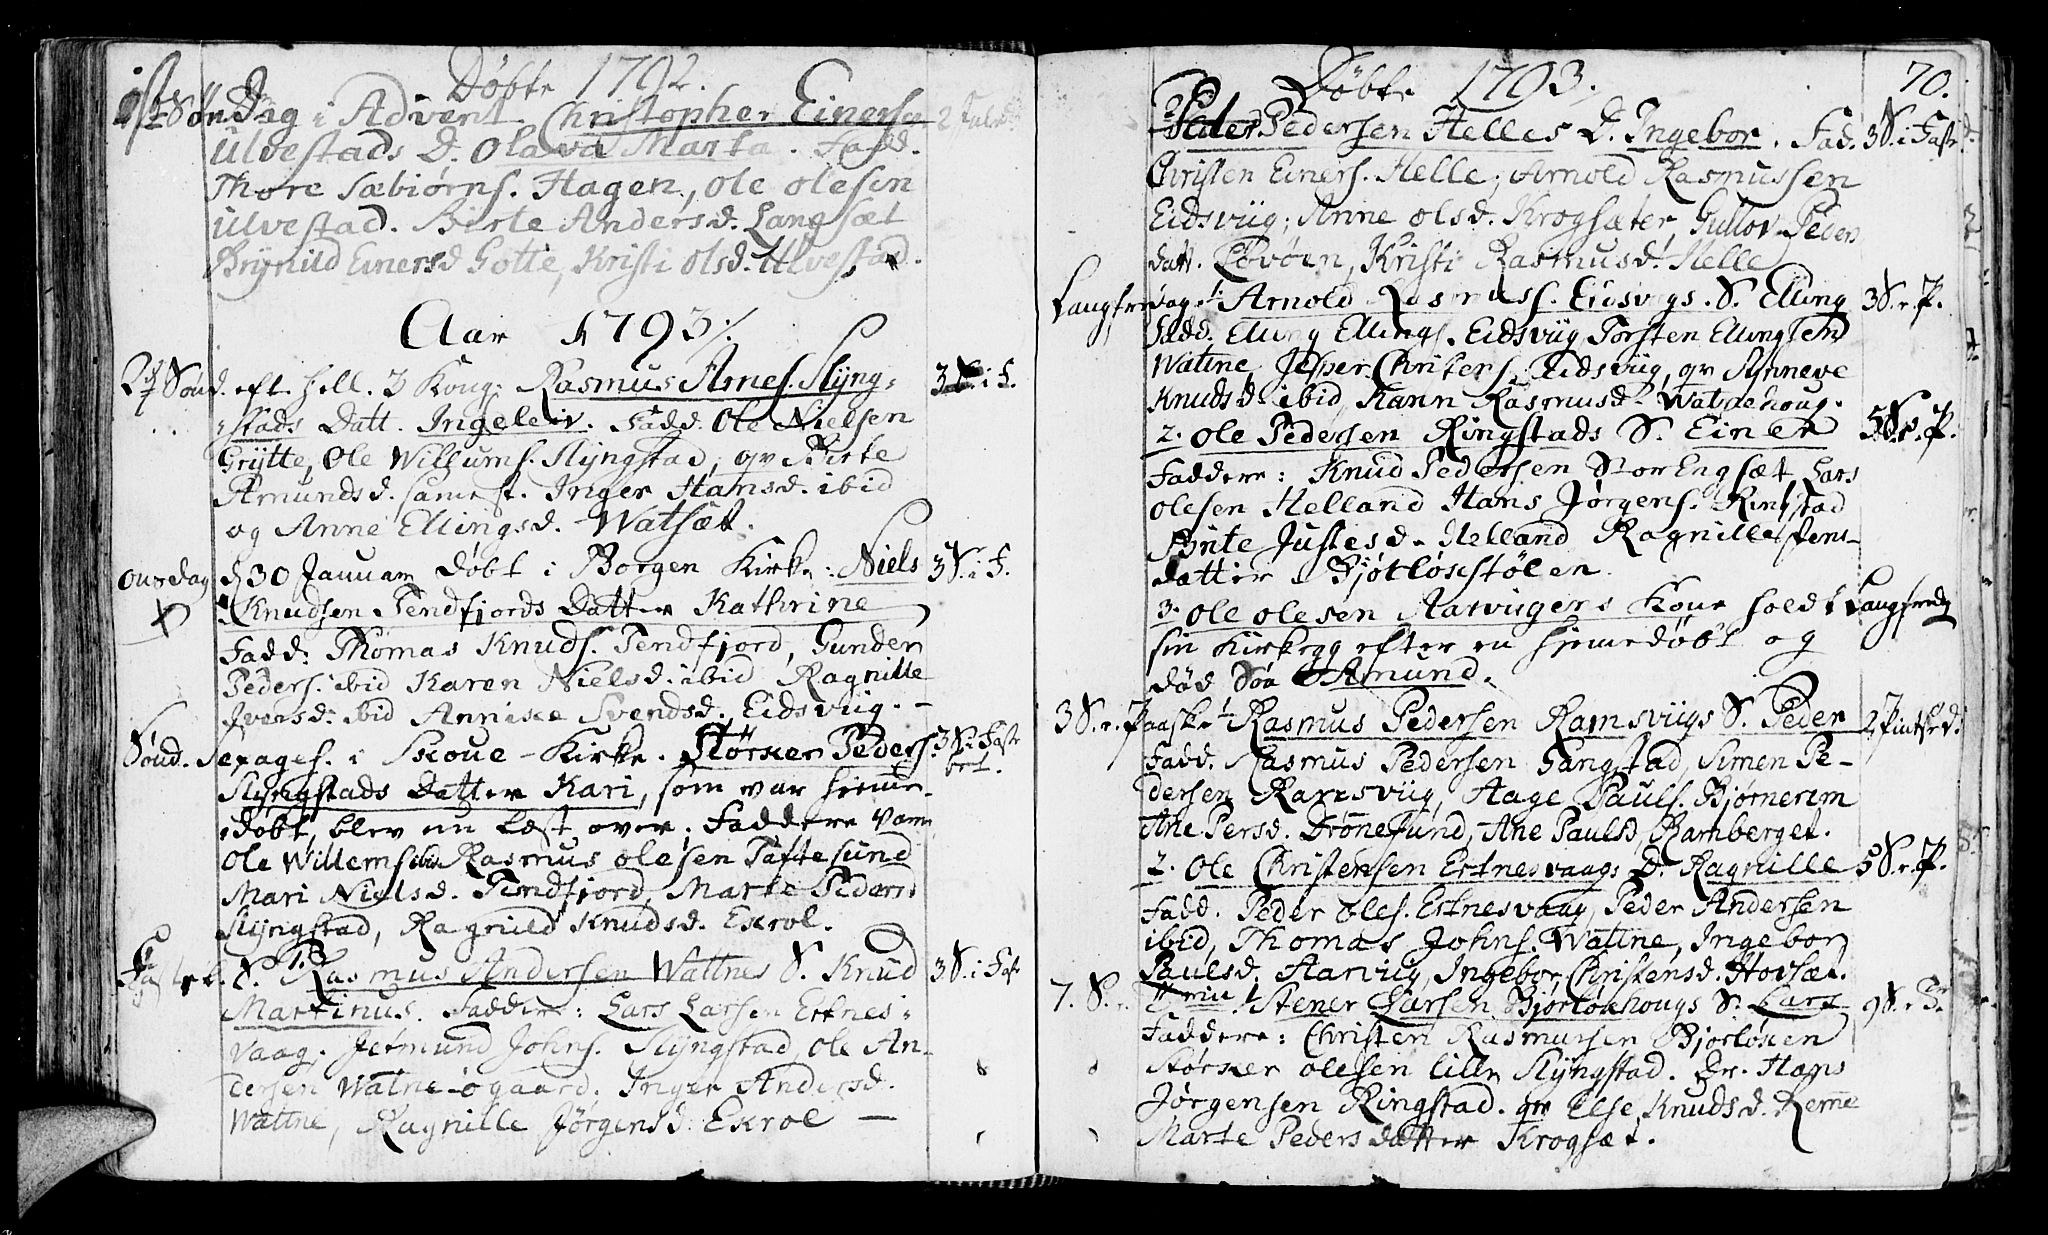 Døbte 1792.
1ste Søndag i Advent Christopher Einersen 2 Juled.
Ulvestads D. Olava Marta. Fadd.
Thore Sæbiørns. Hagen, Ole Olesen
Ulvestad. Birte Andersd. Langsæt
Brynild Einersd Gotte, Kristi Olsd. Ulvestad.
Aar 1793 ./.
2d Sønd. eft. Hell. 3 Kong: Rasmus Arnes. Slÿng- 3 S. i F.
stads Datt. Ingeleiv. Fadd. Ole Nielsen
Grÿtte, Ole Willums. Slÿngstad, qv Birte
Amundsd. samest. Inger Hansd. ibid
og Anne Ellingsd. Watsæt.
Onsdag d 30 Januar døbt i Borgen Kirke: Niels 3 S. i F.
Knudsen Tendfjords Datter Kathrine
Fadd: Thomas Knuds. Tendfjord, Gunder
Peders. ibid Karen Nielsd. ibid Ragnille
Iversd. ibid Annike Svendsd. Eidsviig. -
Sønd. Sexages. i Skoue-Kirke. Størker Peders. 3 S. i Fast
Slÿngstads Datter Kari, som var hieme-
døbt, blev nu læst over; Faddere vare
Ole Willems ibid Rasmus Olesen Taftesund
Mari Nielsd. Tendfjord, Marte Pedersd
Slÿngstad, Ragnild Knudsd. Ekrol.
Fastel. S. 1. Rasmus Andersen Wattnes S. Knud 3 S. i Fast
Martinus. Faddere: Lars Larsen Ertnes-
vaag, Jetmund Johns. Slÿngstad, Ole An-
dersen Watne-øgaard. Inger Andersd.
Wattne, Ragnille Jørgensd. Ekrol —
Døbte 1793. 70.
2. Peder Pedersen Helles D. Ingebor. Fad. 3 S. i Fast
Christen Einers. Helle, Arnold Rasmussen
Eidsviig; Anne Olsd. Krogsæter, Gullov Peders
datt. Løvøen, Kristi Rasmusd. Helle
Langfredag 1. Arnold Rasmuss. Eidsvigs. S. Elling 3 S. e. P.
Fadd. Elling Ellings. Eidsviig Torsten Ellingsen
Watne, Jesper Christens. Eidsviig, qv Anneve
Knudsd. ibid, Karen Rasmusd. Watnehoug.
2. Ole Pedersen Ringstads S. Einer 5 S. e. P.
Faddere: Knud Pedersen Stor Engsæt, Lars
Olesen Helland Hans Jørgens. Ringstad
Birte Justesd. Helland Ragnille Jens-
datter Bjørløkstølen.
3. Ole Olesen Aarviigens Kone holdt Langfredg
sin Kirkegg efter en hjemedøbt og
død Søn Amund.
3 S. e. Paaske 1. Rasmus Pedersen Ramsviigs S. Peder 2 Pintsed.
Fadd. Rasmus Pedersen Gangstad, Simen Pe-
dersen Ramsviig, Aage Pauls. Bjørnerem
Ane Persd. Drønesund, Ane Paulsd Ramberget.
2. Ole Christensen Ertnesvaags D. Ragnille 5 S. e. P.
Fadd. Peder Oles. Ertnesvaag, Peder Andersen
ibid, Thomas Johns. Watne, Ingebor
Paulsd. Aarviig, Ingebor Christensd. Hovsæt.
7. S. e. Trin. 1. Stener Larsen Bjørløkhougs S. Lars 9 S. e. Tr.
Faddere: Christen Rasmussen Bjørløken
Størker Olesen Lille Slÿngstad. Dr. Hans
Jørgensen Ringstad. qv Else Knudsd. Reme
Marte Pedersdatter Krogsæt.